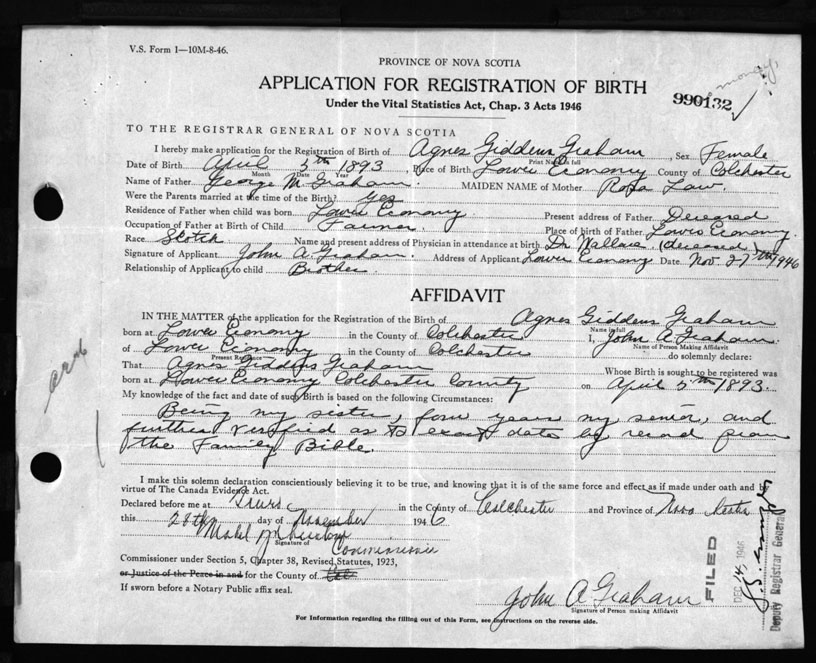 V.S. Form 1—10M-8-46.
PROVINCE OF NOVA SCOTIA
APPLICATION FOR REGISTRATION OF BIRTH
Under the Vital Statistics Act, Chap. 3 Acts 1946
990132
TO THE REGISTRAR GENERAL OF NOVA SCOTIA
I hereby make application for the Registration of Birth of Agnes Giddens Graham, Sex Female
Print Name in full
Date of Birth April 5th 1893, Place of Birth Lower Economy County of Colchester
Month Date Year
Name of Father George M. Graham. MAIDEN NAME of Mother Rosa Law.
Were the Parents married at the time of the Birth? Yes
Residence of Father when child was born Lower Economy Present address of Father Deceased
Occupation of Father at Birth of Child Farmer. Place of birth of Father Lower Economy.
Race Scotch Name and present address of Physician in attendance at birth Dr. Wallace (deceased)
Signature of Applicant John A. Graham. Address of Applicant Lower Economy Date Nov. 27th 1946
Relationship of Applicant to child Brother.
AFFIDAVIT
IN THE MATTER of the application for the Registration of the Birth of Agnes Giddens Graham
Name in full
born at Lower Economy in the County of Colchester I, John A. Graham.
Name of Person Making Affidavit
of Lower Economy in the County of Colchester do solemnly declare:
Present Residence
That Agnes Giddens Graham Whose Birth is sought to be registered was
born at Lower Economy Colchester County on April 5th 1893.
My knowledge of the fact and date of such Birth is based on the following Circumstances:
Being my sister, four years my senior, and
further verified as to exact date by record from
the Family Bible.
I make this solemn declaration conscientiously believing it to be true, and knowing that it is of the same force and effect as if made under oath and by
virtue of The Canada Evidence Act.
Declared before me at Truro in the County of Colchester and Province of Nova Scotia
this 28th day of November 1946
Signature of Commissioner
Commissioner under Section 5, Chapter 38, Revised Statutes, 1923,
or Justice of the Peace in and for the County of
If sworn before a Notary Public affix seal.
John A Graham
Signature of Person making Affidavit
For Information regarding the filling out of this Form, see instructions on the reverse side.
FILED
DEC 14, 1946
Deputy Registrar General